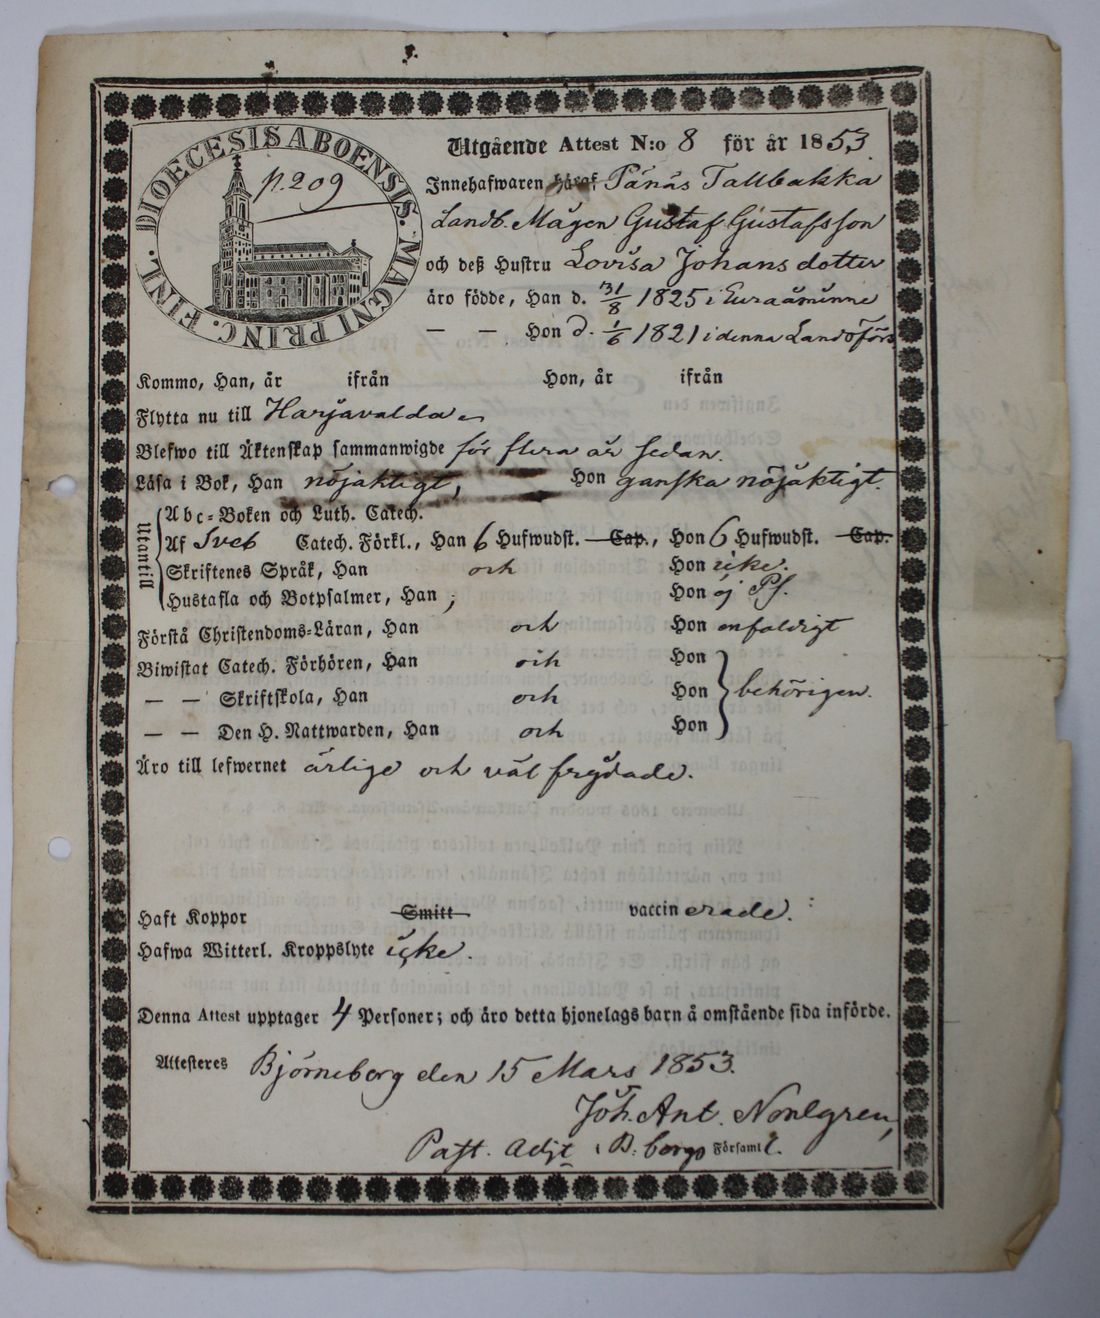 DIOECESIS ABOENSIS. MAGNI PRINC. FINL.
p. 209
Utgående Attest N:o 8 för år 1853.
Innehafwaren häraf Pänäs Tallbakka
Landb. Mågen Gustaf Gustafsson
och deß Hustru Lovisa Johans dotter
äro födde, Han d. 31/8 1825 i Euraåminne
— — Hon d. 1/6 1821 i denna Landsförs
Kommo, Han, år ifrån Hon, år ifrån
Flytta nu till Harjavalda
Blefwo till Äktenskap sammanwigde för flera år sedan.
Läsa i Bok, Han nöjaktigt, Hon ganska nöjaktigt.
Utantill
Abc-Boken och Luth. Catech.
Af Sveb Catech. Förkl., Han 6 Hufwudst. Cap., Hon 6 Hufwudst. Cap.
Skriftenes Språk, Han och Hon icke.
Hustafla och Botpsalmer, Han, Hon ej Ps.
Förstå Christendoms-Läran, Han och Hon enfaldigt
Biwistat Catech. Förhören, Han och Hon
— — Skriftskola, Han och Hon behörigen.
— — Den H. Nattwarden, Han och Hon
Äro till lefwernet ärlige och väl frejdade.
Haft Koppor Smitt vaccinerade.
Hafwa Witterl. Kroppslyte icke.
Denna Attest upptager 4 Personer; och äro detta hjonelags barn å omstående sida införde.
Attesteres Björneborg den 15 Mars 1853.
Joh. Ant. Nordgren,
Past. Adjt i B:borgs Förscaml.